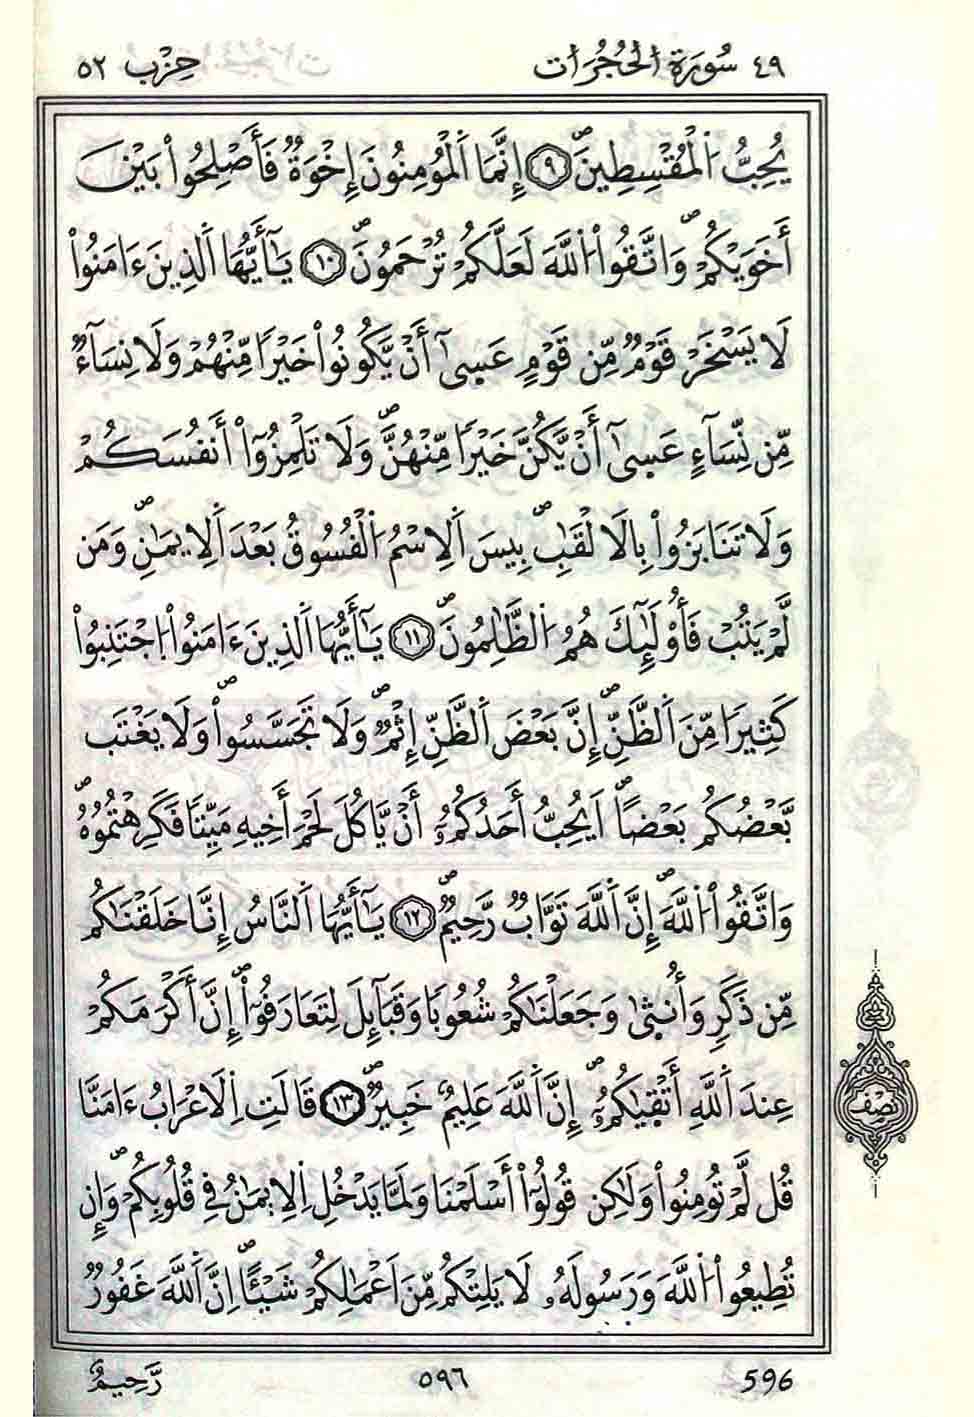 ٤٩ سُورَةُ الْحُجُرَاتِ حِزْبُ ٥٢
يُحِبُّ اُ۬لْمُقْسِطِينَۖ ٩ إِنَّمَا اَ۬لْمُومِنُونَ إِخْوَةٞ فَأَصْلِحُواْ بَيْنَ
أَخَوَيْكُمْۖ وَاتَّقُواْ اُ۬للَّهَ لَعَلَّكُمْ تُرْحَمُونَۖ ١٠ يَٰٓأَيُّهَا اَ۬لذِينَ ءَامَنُواْ
لَا يَسْخَرْ قَوْمٞ مِّن قَوْمٍ عَس۪ىٰٓ أَنْ يَّكُونُواْ خَيْراٗ مِّنْهُمْ وَلَا نِسَآءٞ
مِّن نِّسَآءٍ عَس۪ىٰٓ أَنْ يَّكُنَّ خَيْراٗ مِّنْهُنَّۖ وَلَا تَلْمِزُوٓاْ أَنفُسَكُمْ
وَلَا تَنَابَزُواْ بِالَالْقَٰبِۖ بِيسَ اَ۬لِاسْمُ اُ۬لْفُسُوقُ بَعْدَ اَ۬لِايمَٰنِۖ وَمَن
لَّمْ يَتُبْ فَأُوْلَٰٓئِكَ هُمُ اُ۬لظَّٰلِمُونَۖ ١١ يَٰٓأَيُّهَا اَ۬لذِينَ ءَامَنُواْ اُ۪جْتَنِبُواْ
كَثِيراٗ مِّنَ اَ۬لظَّنِّۖ إِنَّ بَعْضَ اَ۬لظَّنِّ إِثْمٞۖ وَلَا تَجَسَّسُواْۖ وَلَا يَغْتَب
بَّعْضُكُم بَعْضاًۖ اَيُحِبُّ أَحَدُكُمُۥٓ أَنْ يَّاكُلَ لَحْمَ أَخِيهِ مَيِّتاٗ فَكَرِهْتُمُوهُۖ
وَاتَّقُواْ اُ۬للَّهَۖ إِنَّ اَ۬للَّهَ تَوَّابٞ رَّحِيمٞۖ ١٢ يَٰٓأَيُّهَا اَ۬لنَّاسُ إِنَّا خَلَقْنَٰكُم
مِّن ذَكَرٍ وَأُنث۪ىٰ وَجَعَلْنَٰكُمْ شُعُوباٗ وَقَبَآئِلَ لِتَعَارَفُوٓاْۖ إِنَّ أَكْرَمَكُمْ
عِندَ اَ۬للَّهِ أَتْق۪يٰكُمُۥٓۖ إِنَّ اَ۬للَّهَ عَلِيمٌ خَبِيرٞۖ ١٣ قَالَتِ اِ۬لَاعْرَابُ ءَامَنَّا
قُل لَّمْ تُومِنُواْ وَلَٰكِن قُولُوٓاْ أَسْلَمْنَا وَلَمَّا يَدْخُلِ اِ۬لِايمَٰنُ فِي قُلُوبِكُمْۖ وَإِن
تُطِيعُواْ اُ۬للَّهَ وَرَسُولَهُۥ لَا يَلِتْكُم مِّنَ اَعْمَٰلِكُمْ شَيْـٔاًۖ اِنَّ اَ۬للَّهَ غَفُورٞ
نصف
رَّحِيمٌ ٥٩٦ 596